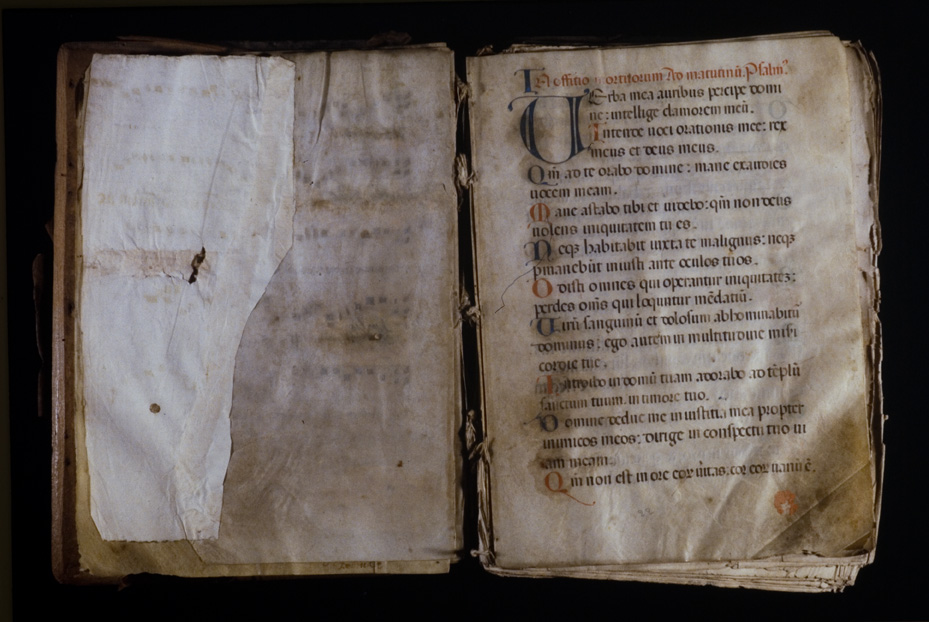 In offitio mortuorum Ad matutinū. Psalm⁹.
Verba mea auribus percipe domi
ne: intellige clamorem meū.
Intende uoci orationis mee: rex
meus et deus meus.
Qm̄ ad te orabo domine: mane exaudies
uocem meam.
Mane astabo tibi et uidebo: qm̄ non deus
uolens iniquitatem tu es.
Neqꝫ habitabit iuxta te malignus: neqꝫ
ꝑmanebūt iniusti ante oculos tuos.
Odisti omnes qui operantur iniquitatē:
perdes om̄s qui loquntur mēdatiū.
Uirū sanguinū et dolosum abhominabit̄
dominus: ego autem in multitudine mise
cordie tue.
Introibo in domū tuam adorabo ad tēplū
sanctum tuum. in timore tuo.
Domine deduc me in iustitia mea propter
inimicos meos: dirige in conspectu tuo ui
am meam.
Qm̄ non est in ore eoꝝ ūitas: cor eoꝝ uanū ē.